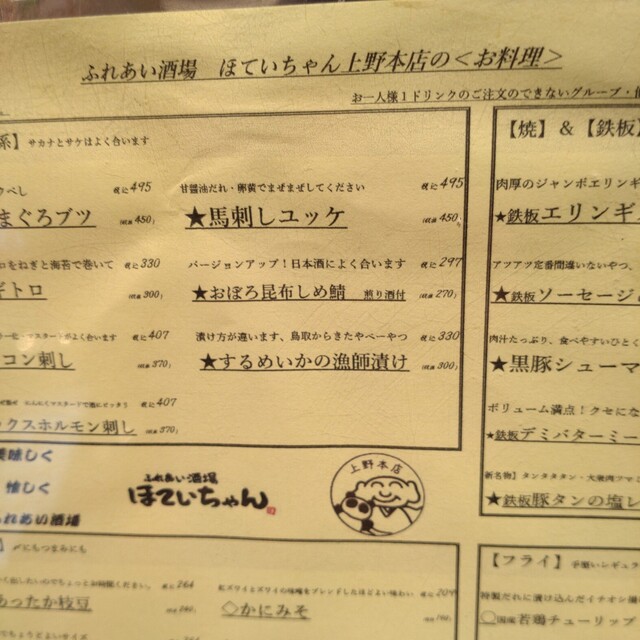 ふれあい酒場 ほていちゃん上野本店の＜お料理＞
お一人様１ドリンクのご注文のできないグループ・他
系】 サカナとサケはよく合います
税込495
まぐろブツ (税抜450)
税込330
ギトロ (税抜300)
税込407
コン刺し (税抜370)
税込407
ックスホルモン刺し (税抜370)
甘醤油だれ・卵黄でまぜまぜしてください 税込495
★馬刺しユッケ (税抜450)
バージョンアップ！日本酒によく合います 税込297
★おぼろ昆布しめ鯖 煎り酒付 (税抜270)
漬け方が違います、鳥取からきたやべーやつ 税込330
★するめいかの漁師漬け (税抜300)
【焼】＆【鉄板】
肉厚のジャンボエリンギ
★鉄板エリンギ
アツアツ定番間違いないやつ、
★鉄板ソーセージ
肉汁たっぷり、食べやすいひとく
★黒豚シューマ
ボリューム満点！クセにな
★鉄板デミバターミー
新名物】タンタタタン・大後肉フマミ
★鉄板豚タンの塩レ
美味しく
愉しく
ふれあい酒場
ふれあい酒場
ほていちゃん
上野本店
〆にもつまみにも
税込264
あったか枝豆
紅ズワイとズワイの味噌をブレンドしたほどよい味わい 税込209
◇かにみそ
【フライ】 手握いレギュラ
特製だれに漬け込んだイチオシ揚
〇国産若鶏チューリップ